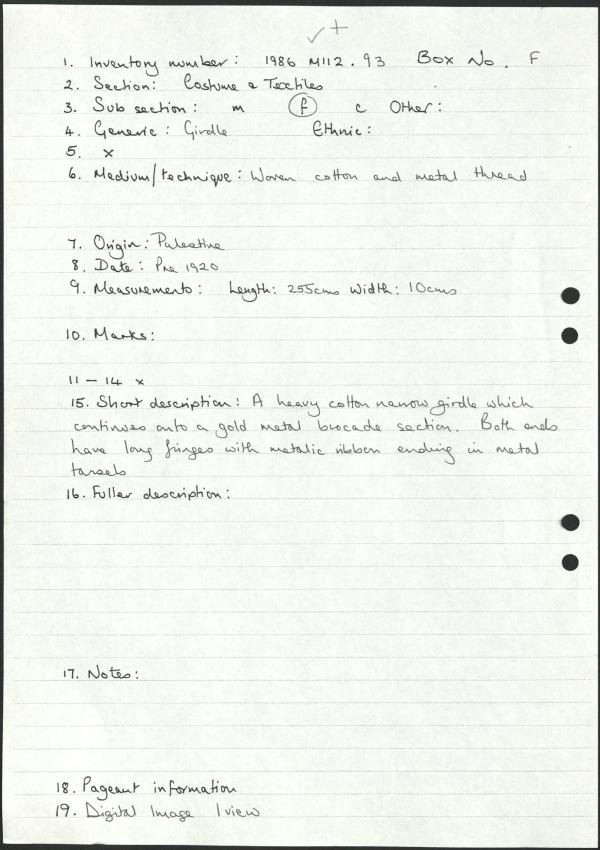 ✓ +
1. Inventory number: 1986 M112.93 Box No. F
2. Section: Costume & Textiles
3. Sub section: m f c Other:
4. Generic: Girdle Ethnic:
5. x
6. Medium/technique: Woven cotton and metal thread
7. Origin: Palestine
8. Date: Pre 1920
9. Measurements: Length: 255cms Width: 10cms
10. Marks:
11 – 14 x
15. Short description: A heavy cotton narrow girdle which
continues onto a gold metal brocade section. Both ends
have long fringes with metalic ribbon ending in metal
tassels
16. Fuller description:
17. Notes:
18. Pageant information
19. Digital Image 1 view